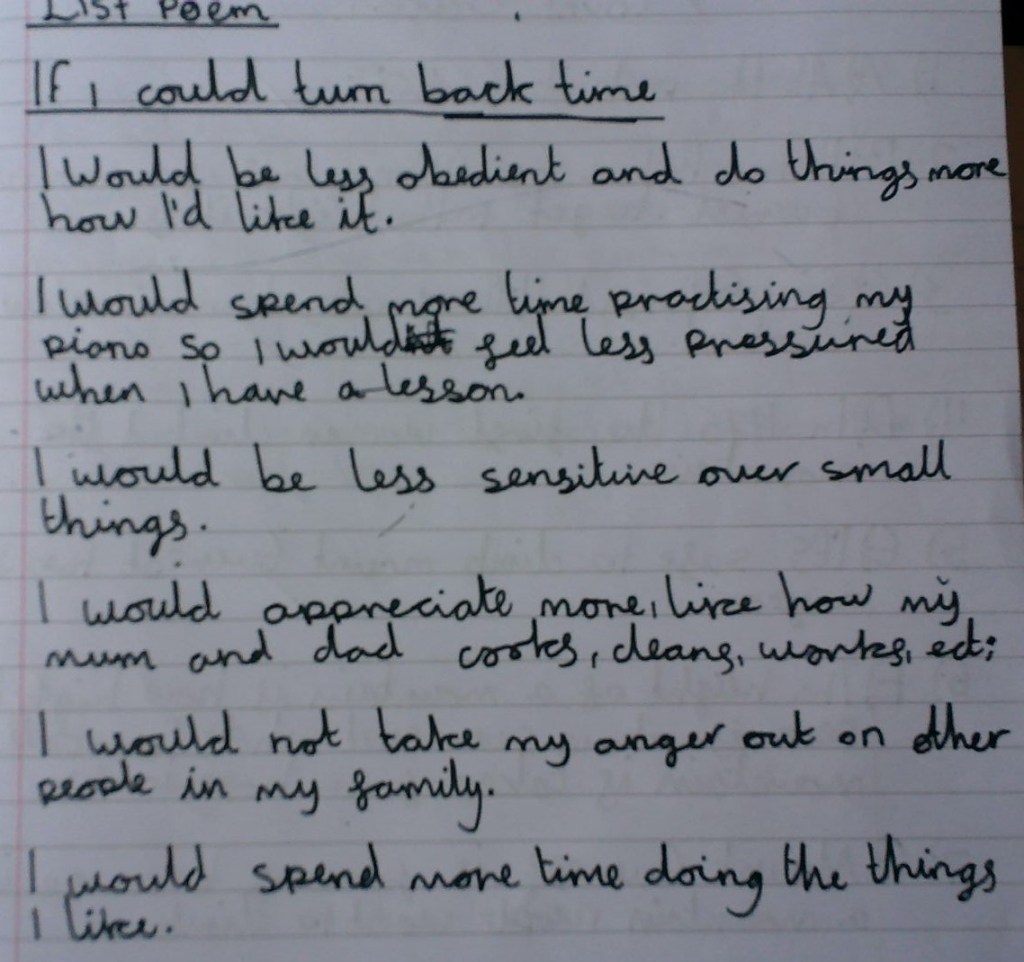 List Poem
If I could turn back time
I Would be less obedient and do things more
how I'd like it.
I would spend more time practising my
piano so I would feel less pressured
when I have a lesson.
I would be less sensitive over small
things.
I would appreciate more, like how my
mum and dad cooks, cleans, works, ect;
I would not take my anger out on other
people in my family.
I would spend more time doing the things
I like.